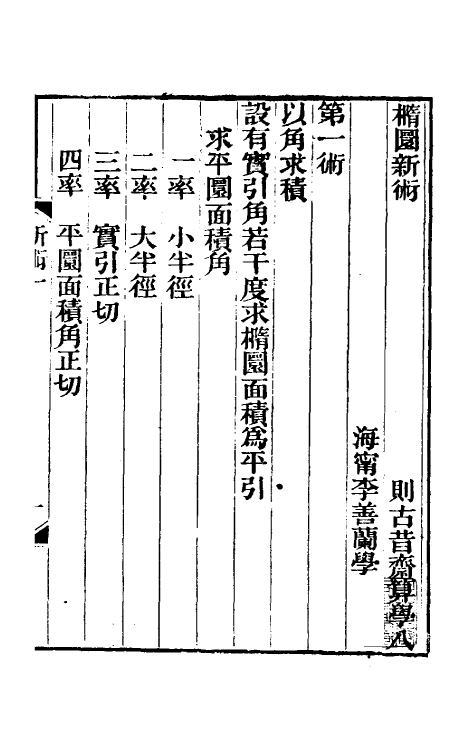 橢圜新術　則古昔齋算學八
海甯李善蘭學
第一術
以角求積
設有實引角若干度求橢圜面積爲平引
求平圜面積角
一率　小半徑
二率　大半徑
三率　實引正切
四率　平圜面積角正切